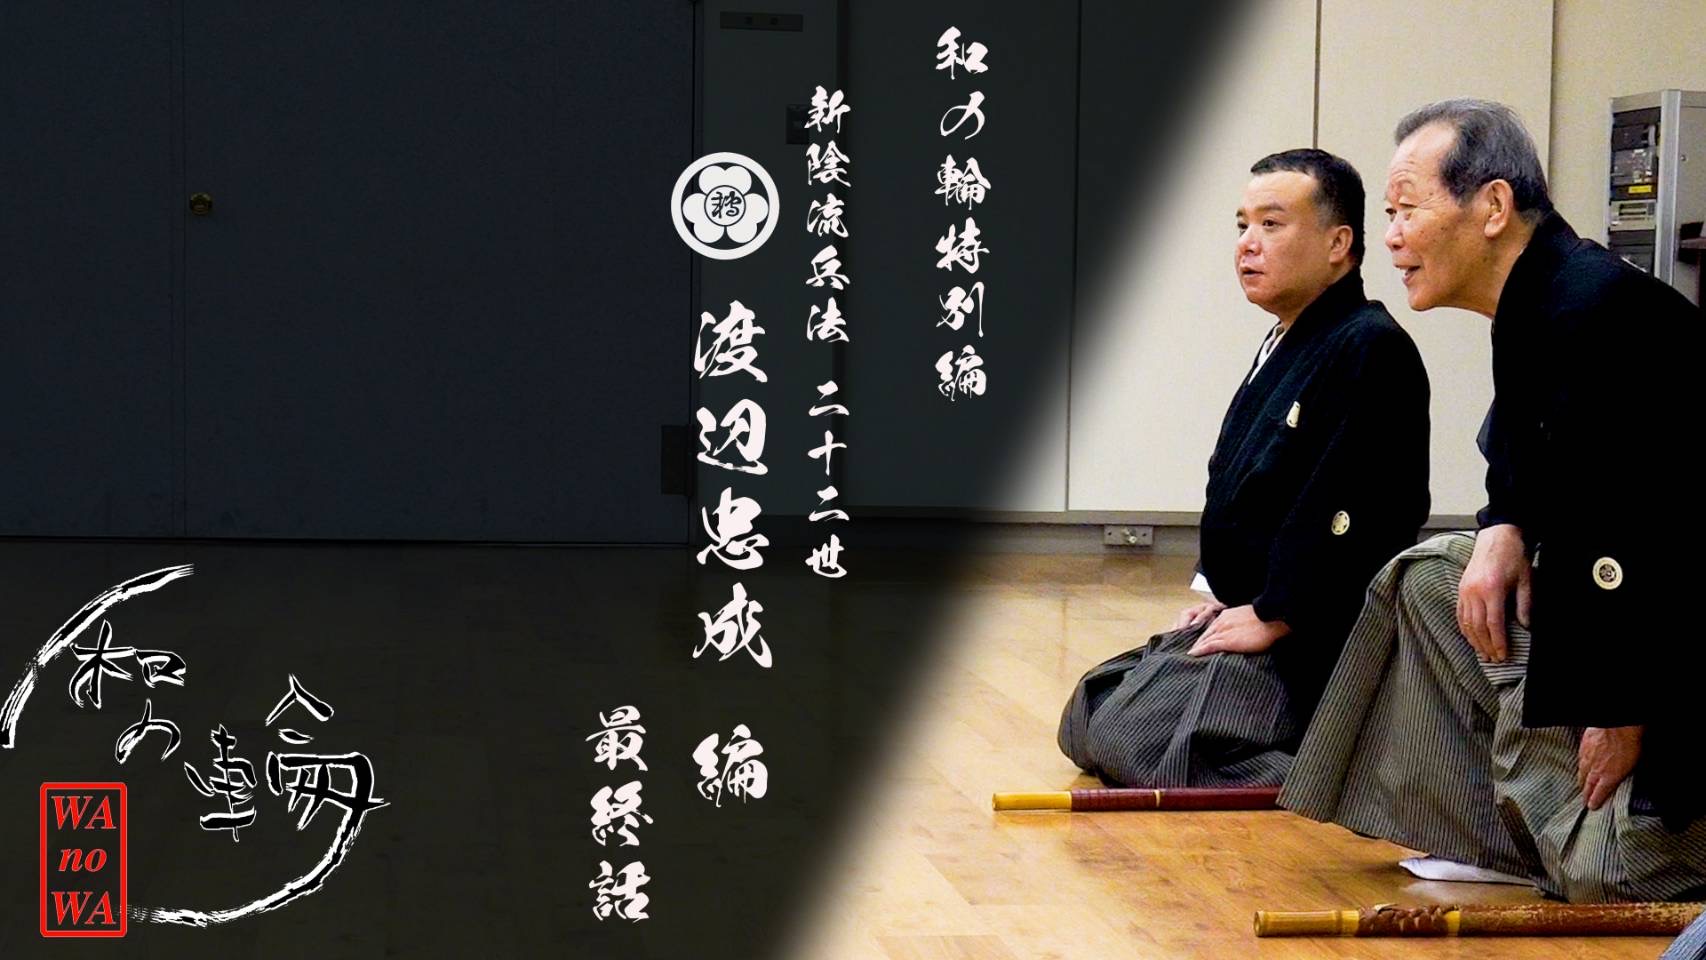 和の輪特別編
新陰流兵法 二十二世
渡辺忠成 編
最終話
和の輪
WA
no
WA